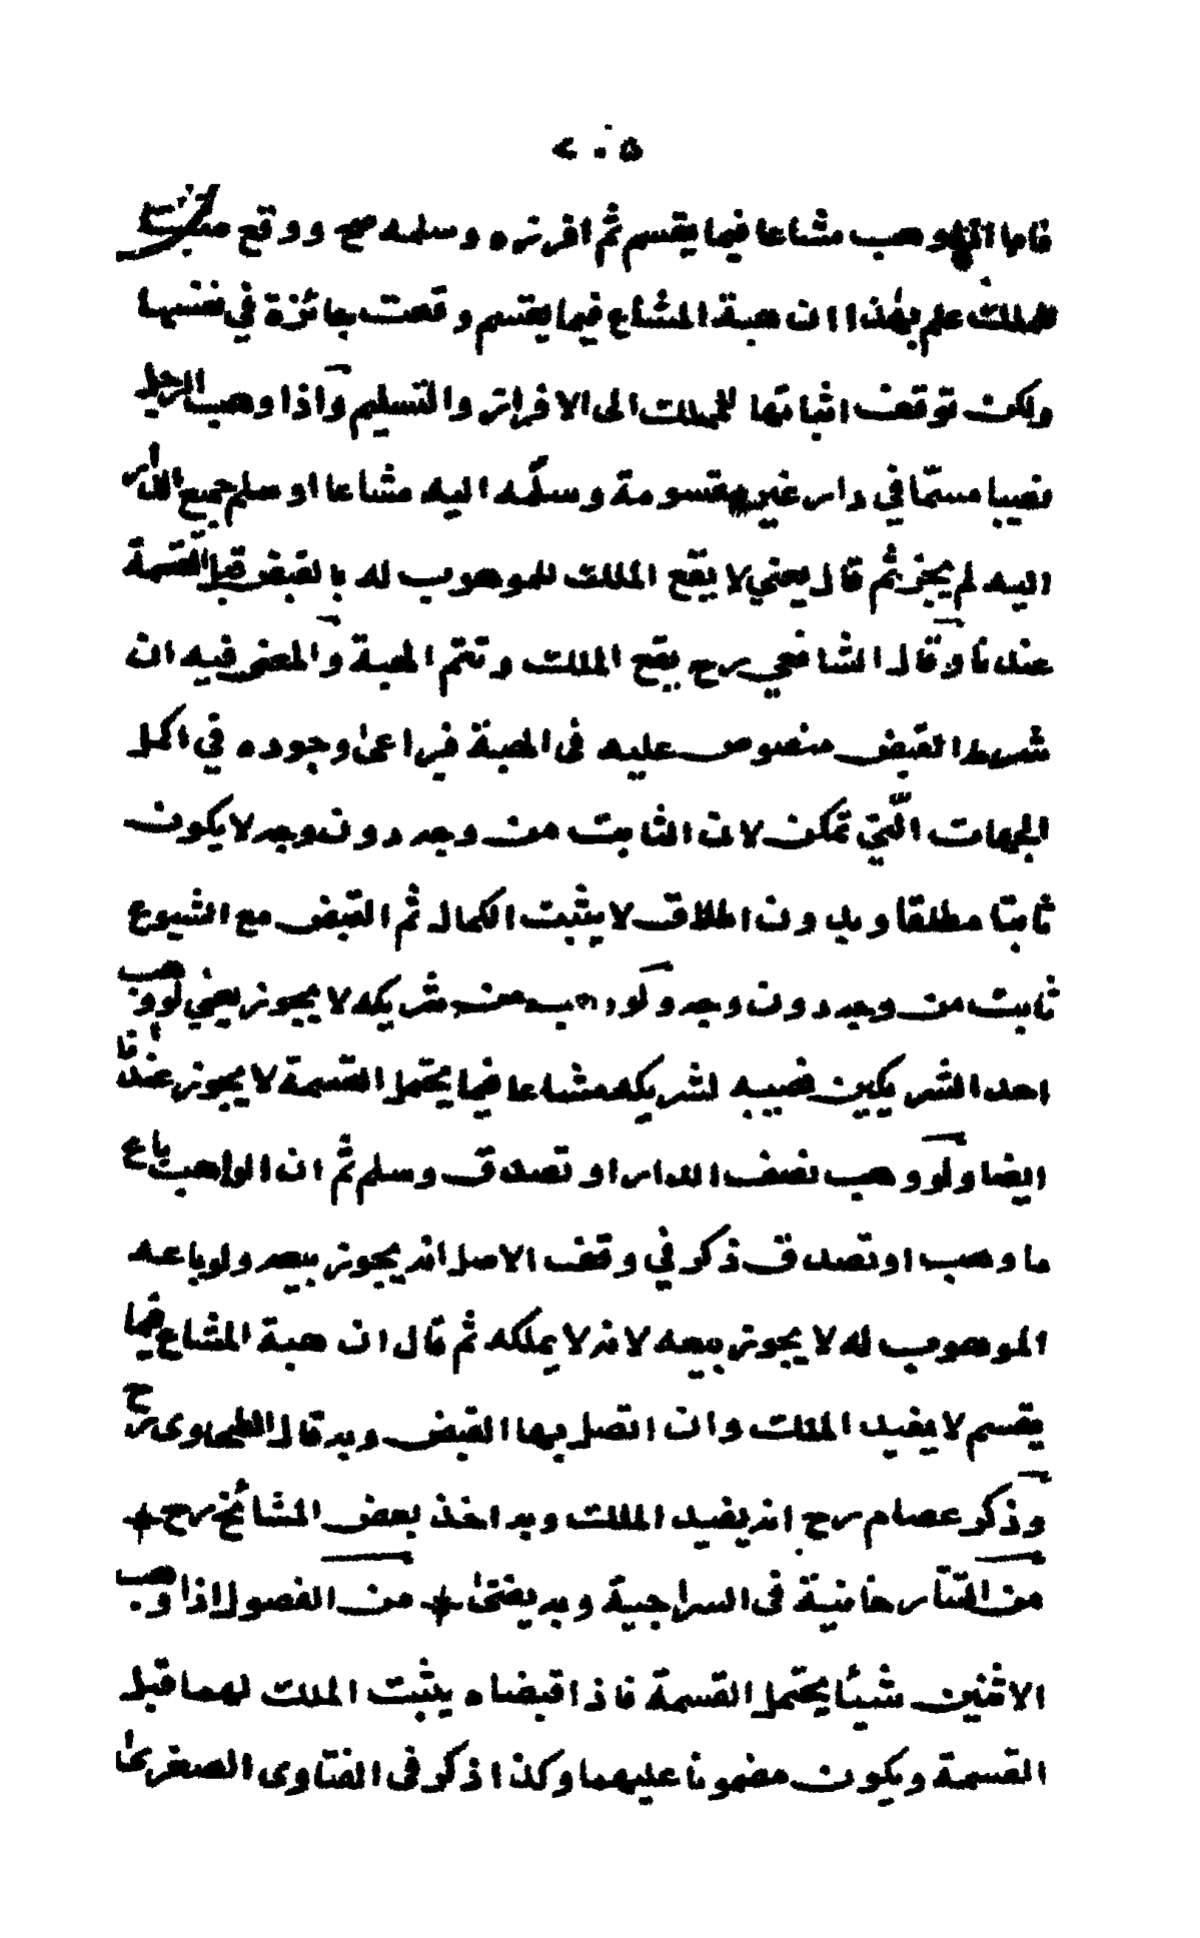 ٢٠٥
فاما اذا وهب مشاعا فيما يقسم ثم افرزه وسلمه صح ووقع مثبتا
للملك علم بهذا ان هبة المشاع فيما يقسم وقعت جائزة في نفسها
ولكن توقف اثباتها للملك الى الافراز والتسليم واذا وهب الرجل
نصيبا مسمّا في دار غير مقسومة وسلّمه اليه مشاعا او سلم جميع الدار
اليه لم يجز ثم قال يعني لا يقع الملك للموهوب له بالقبض قبل القسمة
عندنا وقال الشافعي رح يقع الملك وتتم الهبة والمعنى فيه ان
شرط القبض منصوص عليه فى الهبة فيراعى وجوده في اكمل
الجهات الّتي تمكن لان الثابت من وجه دون وجه لا يكون
ثابتا مطلقا وبدون اطلاق لا يثبت الكمال ثم القبض مع الشيوع
ثابت من وجه دون وجه ولو وهب من شريكه لا يجوز يعني لو وهب
احد الشريكين نصيبه لشريكه مشاعا فيما يحتمل القسمة لا يجوز عندنا
ايضا ولو وهب نصف الدار او تصدق وسلم ثم ان الواهب باع
ما وهب او تصدق ذكر في وقف الاصل انه يجوز بيعه ولو باعه
الموهوب له لا يجوز بيعه لانه لا يملكه ثم قال ان هبة المشاع فيما
يقسم لا يفيد الملك وان اتصل بها القبض وبه قال الطحاوى رح
وذكر عصام رح انه يفيد الملك وبه اخذ بعض المشائخ رح +
من التتارخانية فى السراجية وبه يفتى + من الفصول اذا وهب
الاثنين شيئا يحتمل القسمة فاذا قبضاه يثبت الملك لهما قبل
القسمة ويكون مضمونا عليهما وكذا ذكر فى الفتاوى الصغرى